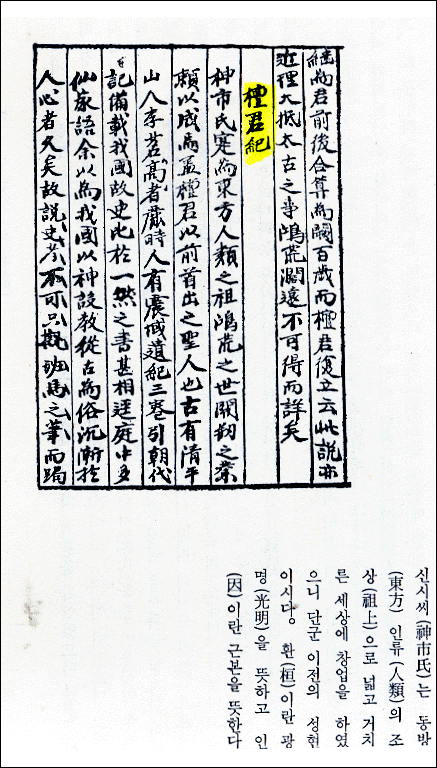 継為君前後合算為闕百歲而檀君復立云此說亦
近理大抵太古之事鴻荒濶遠不可得而詳矣
檀君紀
神市氏寔為東方人類之祖鴻荒之世開刱之業
賴以成焉盖檀君以前首出之聖人也古有清平
山人李茗者麗時人有震域遺紀三卷引朝代
記備載我國故史比於一然之書甚相逕庭中多
仙家語余以為我國以神設教從古為俗沉漸於
人心者久矣故說史者不可只擬班馬之筆而跼
신시씨(神市氏)는 동방
(東方) 인류(人類)의 조
상(祖上)으로 넓고 거치
른 세상에 창업을 하였
으니 단군 이전의 성현
이시다。 환(桓)이란 광
명(光明)을 뜻하고 인
(因)이란 근본을 뜻한다